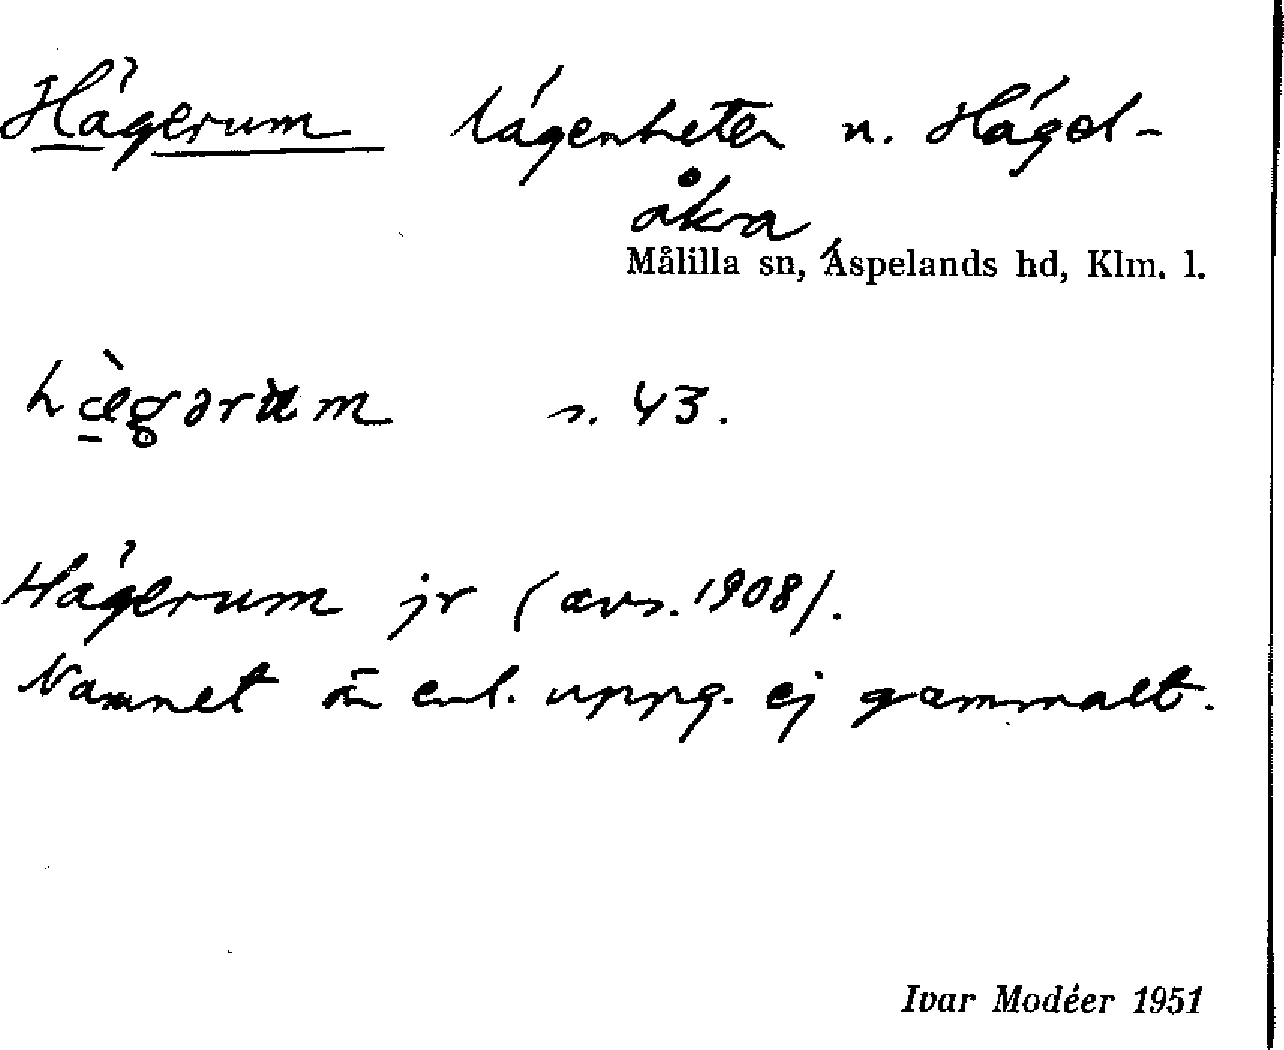 Hägerum lägenheter n. Hägel-
åkra
Målilla sn, Aspelands hd, Klm. l.
hæ̀gərùm s. 43.
Hägerum jr (avs. 1908).
Namnet är enl. uppg. ej gammalt.
Ivar Modéer 1951